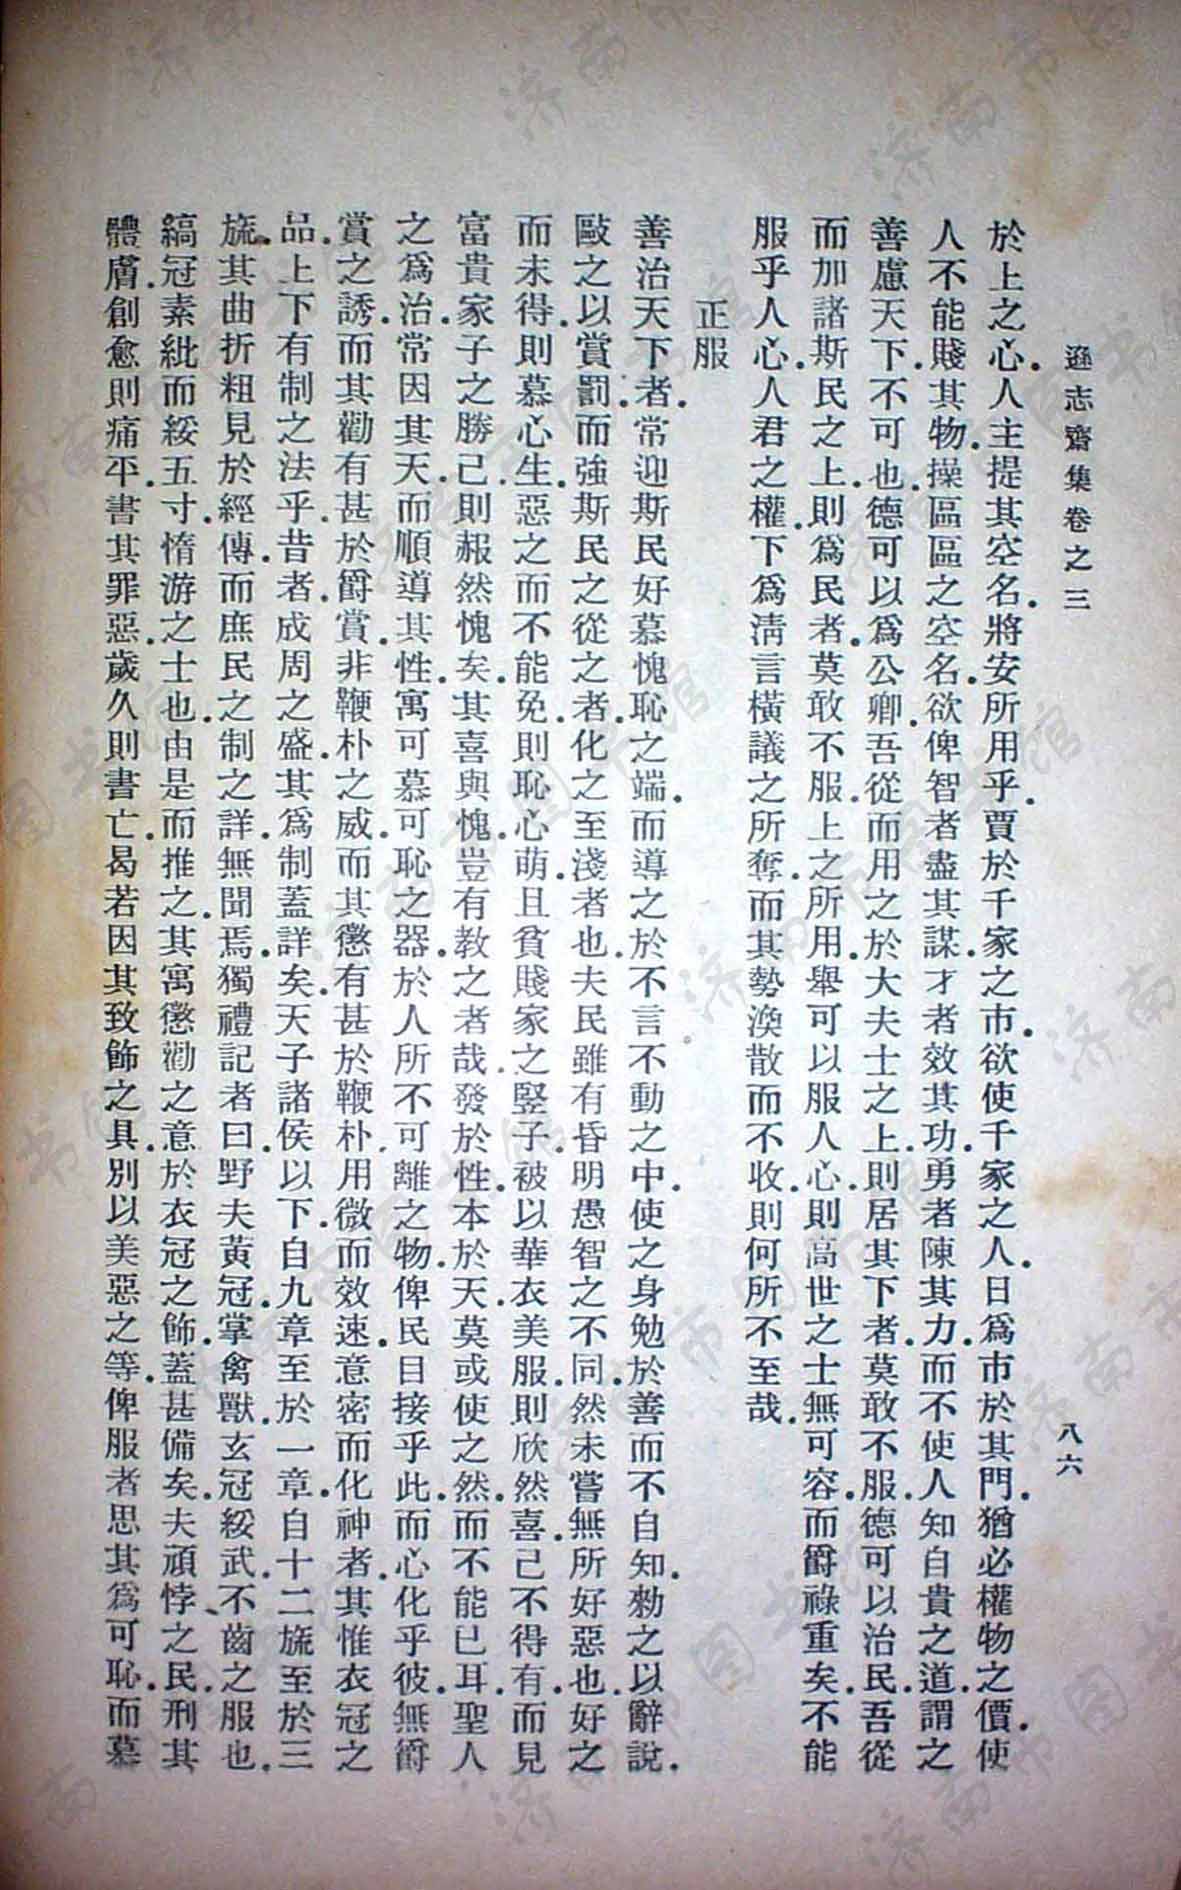 遜志齋集卷之三
八六
於上之心.人主提其空名.將安所用乎.賈於千家之市.欲使千家之人.日爲市於其門.猶必權物之價.使
人不能賤其物.操區區之空名.欲俾智者盡其謀.才者效其功.勇者陳其力.而不使人知自貴之道.謂之
善慮天下.不可也.德可以爲公卿.吾從而用之於大夫士之上.則居其下者.莫敢不服.德可以治民.吾從
而加諸斯民之上.則爲民者.莫敢不服.上之所用.舉可以服人心.則高世之士無可容.而爵祿重矣.不能
服乎人心.人君之權.下爲淸言橫議之所奪.而其勢渙散而不收.則何所不至哉.
正服
善治天下者.常迎斯民好慕愧恥之端.而導之於不言不動之中.使之身勉於善而不自知.勑之以辭說.
毆之以賞罰.而強斯民之從之者.化之至淺者也.夫民雖有昏明愚智之不同.然未嘗無所好惡也.好之
而未得.則慕心生.惡之而不能免.則恥心萌.且貧賤家之竪子.被以華衣美服.則欣然喜.己不得有.而見
富貴家子之勝己.則赧然愧矣.其喜與愧.豈有教之者哉.發於性.本於天.莫或使之然.而不能已耳.聖人
之爲治.常因其天而順導其性.寓可慕可恥之器.於人所不可離之物.俾民目接乎此.而心化乎彼.無爵
賞之誘.而其勸有甚於爵賞.非鞭朴之威.而其懲有甚於鞭朴.用微而效速.意密而化神者.其惟衣冠之
品.上下有制之法乎.昔者成周之盛.其爲制蓋詳矣.天子諸侯以下.自九章至於一章.自十二旒至於三
旒.其曲折粗見於經傳.而庶民之制之詳.無聞焉.獨禮記者曰.野夫黃冠.掌禽獸.玄冠綏武.不齒之服也.
縞冠素紕而綏五寸.惰游之士也.由是而推之.其寓懲勸之意於衣冠之飾.蓋甚備矣.夫頑悖之民.刑其
體膚.創愈則痛平.書其罪惡.歲久則書亡.曷若因其致飾之具.別以美惡之等.俾服者思其爲可恥.而慕